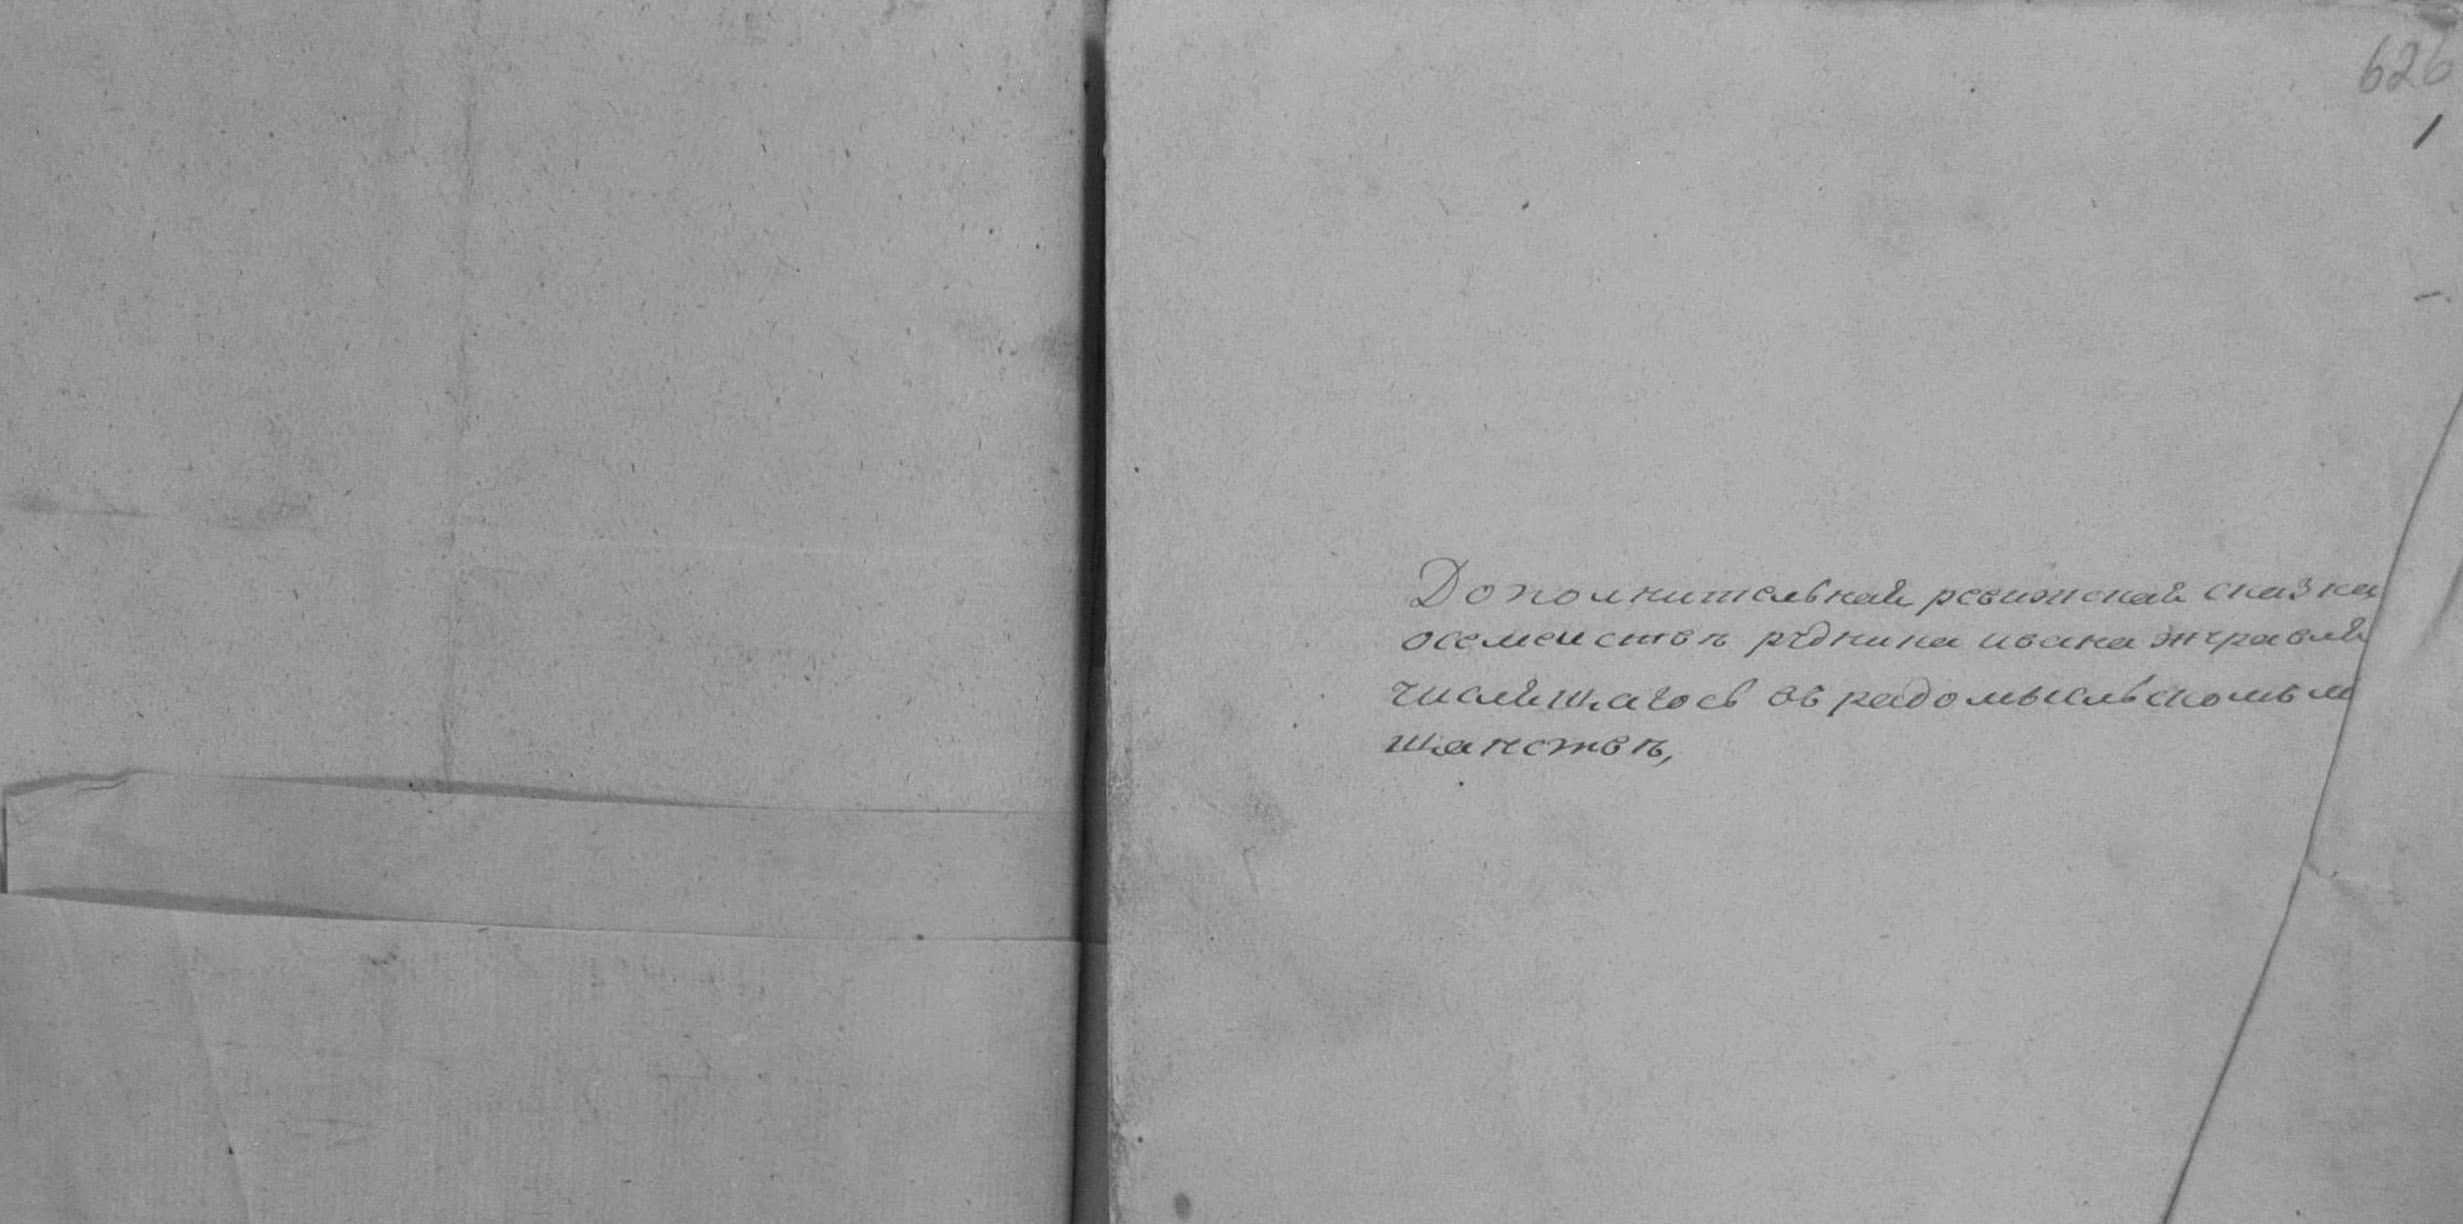 626
1
Дополнительная ревижская сказка
осемеиствѣ рядкина ивана журавля
числящагось въ радомысльскомъ м
щанствѣ,